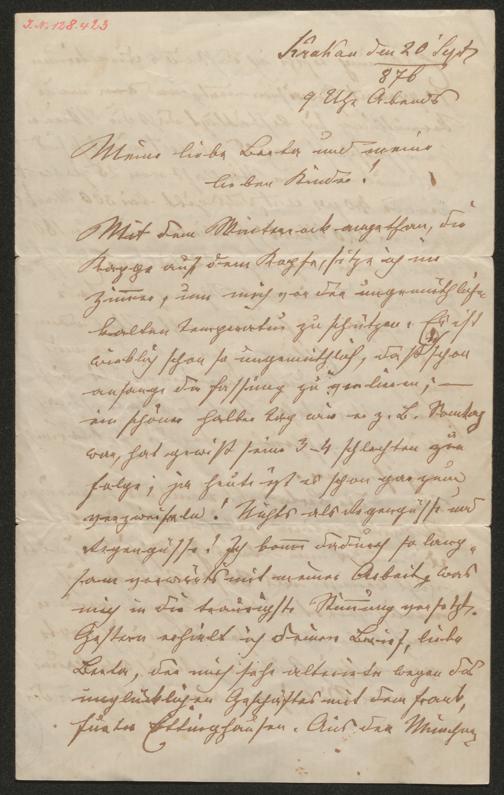 I.N. 128.423
Krakau den 20' Sept
876
9 Uhr Abends
Meine liebe Berta und meine
lieben Kinder!
Mit dem Winterrock angethan, die
Kappe auf dem Kopfe, sitze ich im
Zimmer, um mich vor der ungemüthlich
kalten Temperatur zu schützen. Es ist
wirklich schon so ungemüthlich, daß ich schon
anfange die Fassung zu verlieren; —
ein schöner halber Tag wie er z. B. Sonntag
war, hat gewiß seine 3-4 schlechten zur
Folge; ja heute ist es schon gar zum
verzweifeln! Nichts als Regengüsse und
Regengüsse! Ich komme dadurch so lang-
sam vorwärts mit meiner Arbeit, was
mich in die traurigste Stimmung versetzt.
Gestern erhielt ich deinen Brief, liebe
Berta, der mich sehr alterirte wegen des
unglücklichen Geschäftes mit dem
Ettinghausen. Aus den Münchner